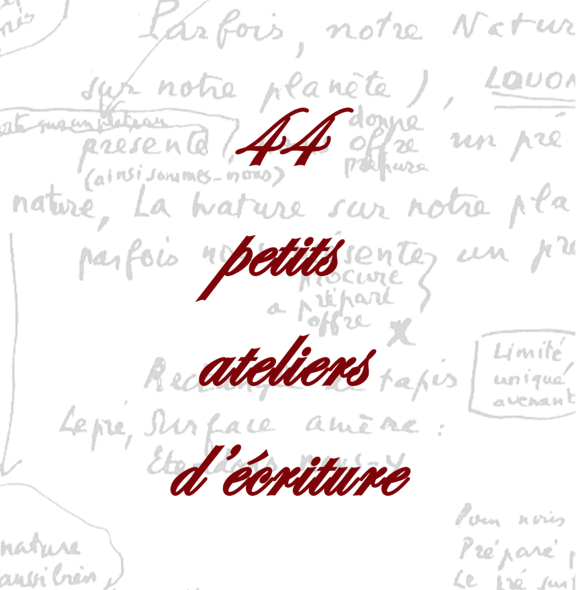 Parfois, notre Natur
sur notre planète), LOUON
présente donne
offre un pré
prépare
44
(ainsi sommes-nous)
nature, La Nature sur notre pla
parfois présente un pr
petits
procure
a préparé
offre
X
Limité
unique
avenant
tapis
ateliers
Le pré, Surface amène :
d'écriture
Pour nous
nature Préparé
aussi bien, Le pré sur